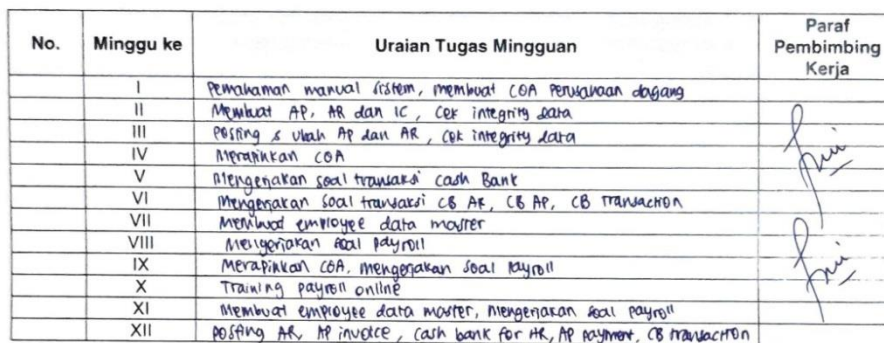 No. Minggu ke Uraian Tugas Mingguan Paraf Pembimbing Kerja
I Pemahaman manual sistem, membuat COA Perusahaan dagang
II Membuat AP, AR dan IC, Cek integrity data
III Posting & ubah AP dan AR, Cek integrity data
IV Merapihkan COA
V Mengerjakan soal transaksi Cash Bank
VI Mengerjakan Soal transaksi CB AR, CB AP, CB Transaction
VII Membuat employee data master
VIII Mengerjakan soal payroll
IX Merapihkan COA, mengerjakan soal payroll
X Training payroll online
XI Membuat employee data master, mengerjakan soal payroll
XII Posting AR, AP invoice, Cash bank for AR, AP payment, CB transaction